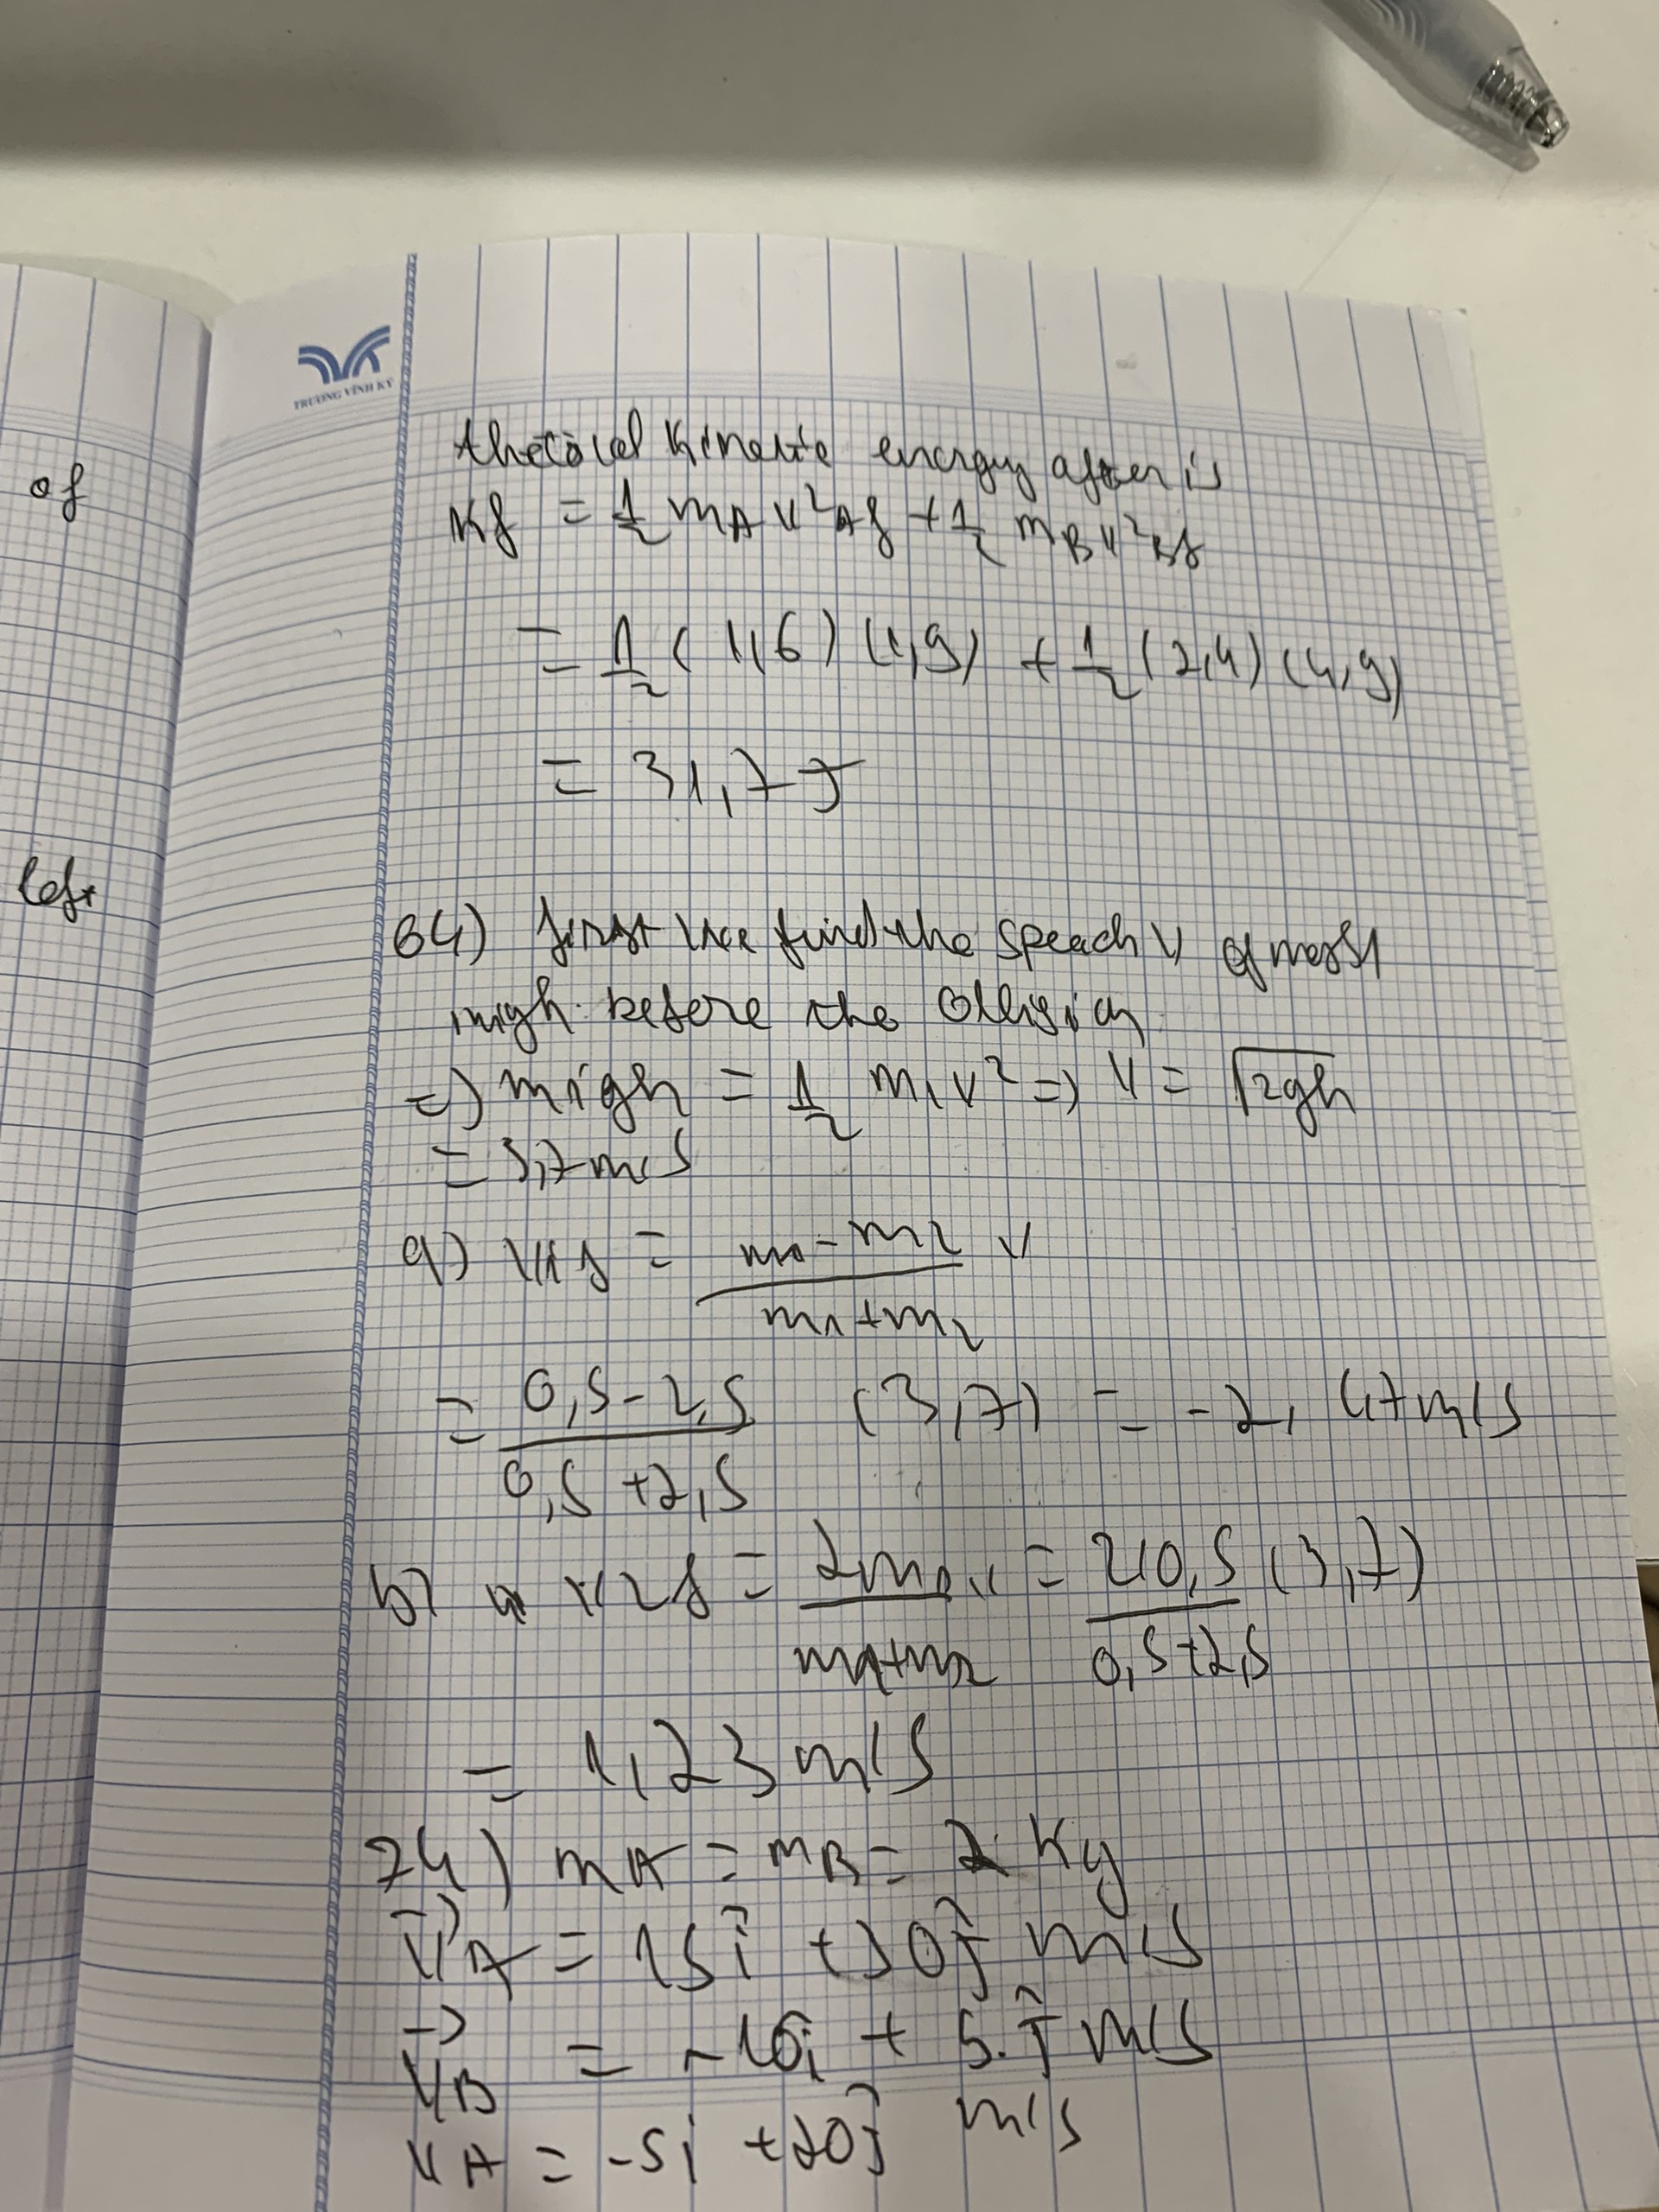 of
left
TRƯƠNG VĨNH KÝ
the total kinetic energy after is
Kf = 1/2 mA v²Af + 1/2 mB v²Bf
= 1/2 (1,6) (1,9) + 1/2 (2,4) (4,9)
= 31,7 J
64) first we find the speach v of mass1
m1gh before the collision
=> m1gh = 1/2 m1 v² => v = √2gh
= 3,7 m/s
a) v1f = m1-m2 / m1+m2 v
= 0,5-2,5 / 0,5+2,5 (3,7) = -2,47 m/s
b) v2f = 2m1v / m1+m2 = 2(0,5 (3,7) / 0,5+2,5
= 1,23 m/s
74) mA = mB = 2 Kg
→vA = 15î + 30ĵ m/s
→vB = -10i + 5.ĵ m/s
vA = -5i + 20ĵ m/s